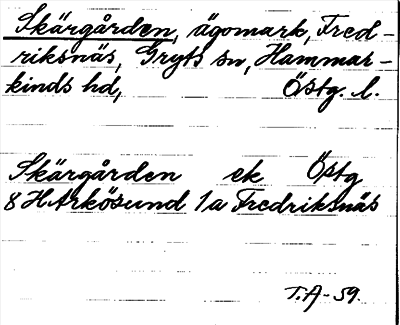 Skärgården, ägomark, Fred-
riksnäs, Gryts sn, Hammar-
kinds hd, Östg. l.
Skärgården ek Östg
8 H Arkösund 1 a Fredriksnäs
T.A-59.